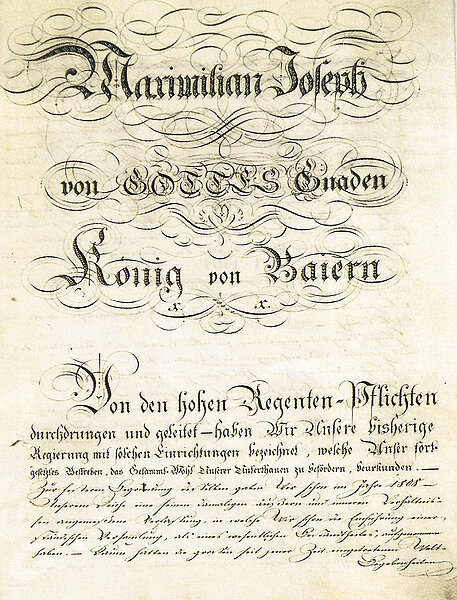 Maximilian Joseph
von GOTTES Gnaden
König von Baiern
x. x.
Von den hohen Regenten-Pflichten
durchdrungen und geleitet – haben Wir Unsere bisherige
Regierung mit solchen Einrichtungen bezeichnet, welche Unser fort-
gesetztes Bestreben, das Gesammt-Wohl Unserer Unterthanen zu befördern, beurkunden. —
Zur festern Begründung desselben gaben Wir schon im Jahre 1808
Unserem Reiche eine seinen damaligen äußern und inneren Verhältnis-
sen angemessene Verfassung, in welche Wir schon die Einführung einer
ständischen Versammlung, als eines wesentlichen Bestandtheiles, aufgenommen
haben. — Kaum hatten die großen seit jener Zeit eingetretenen Welt-
Begebenheiten